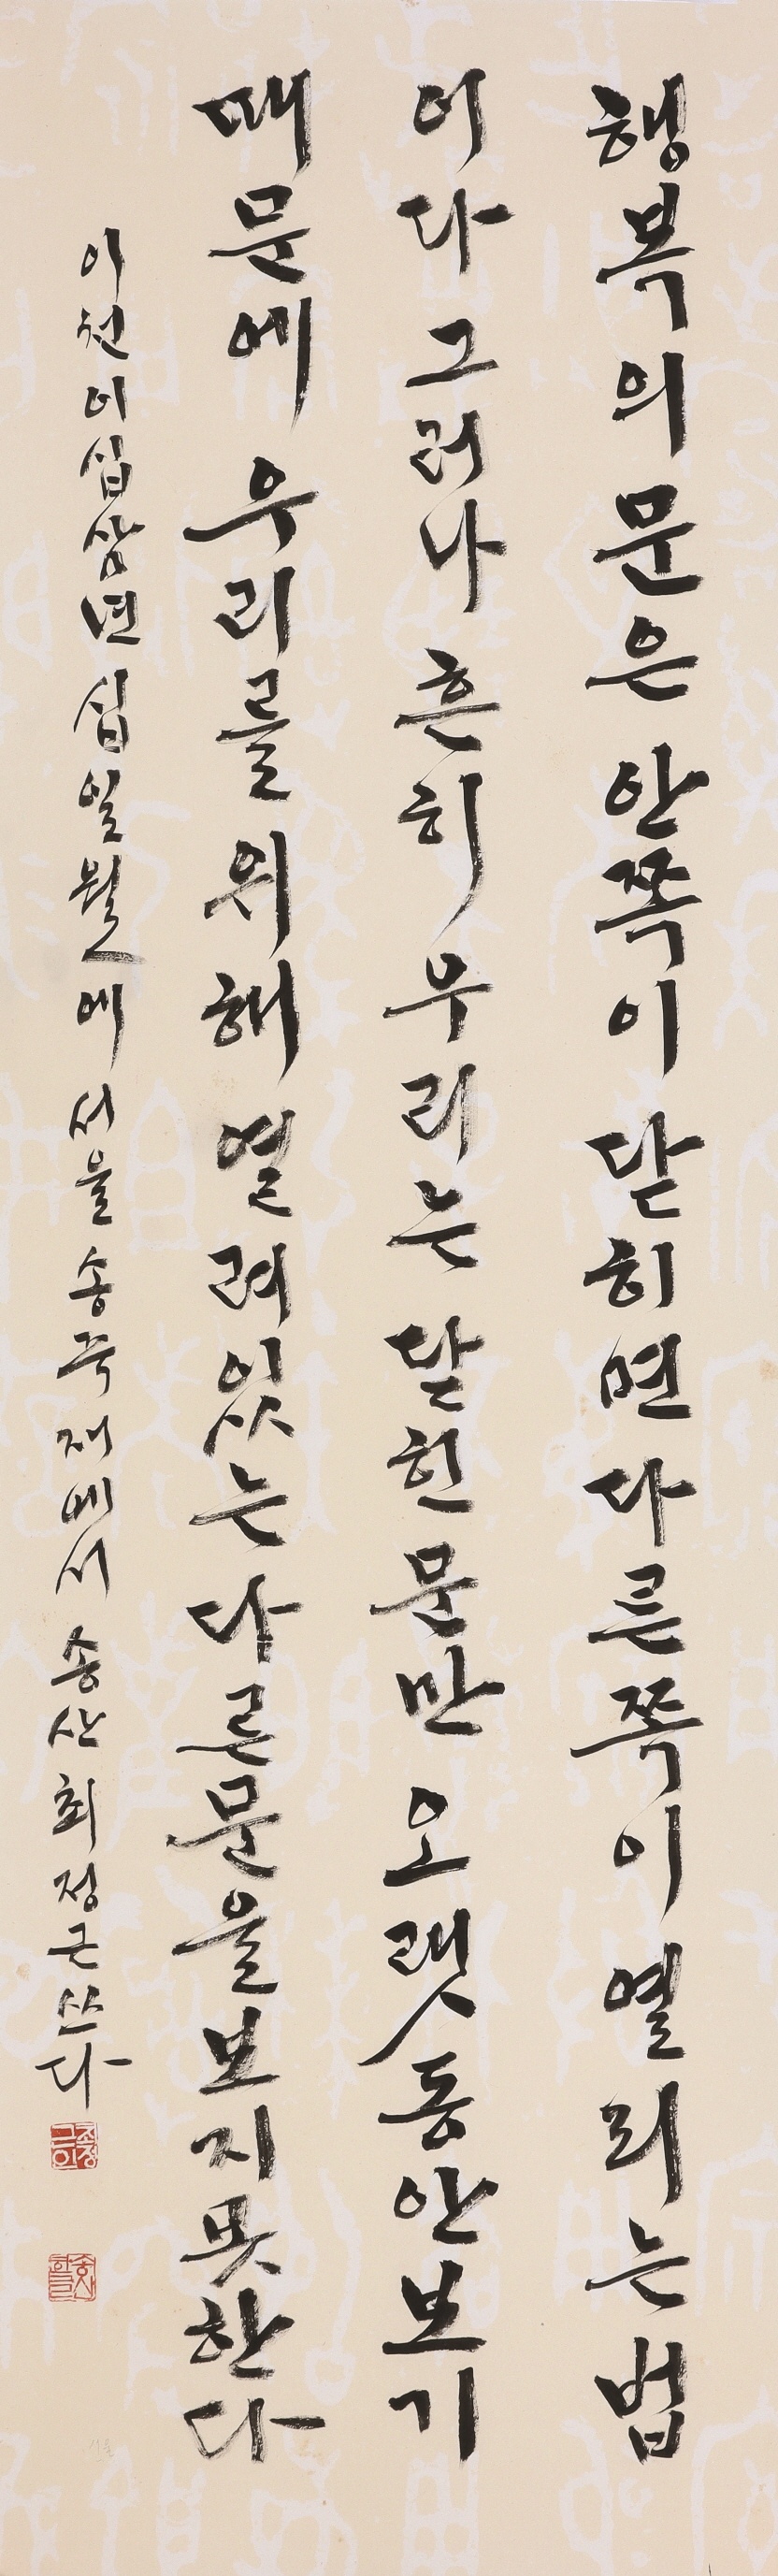 행복의 문은 안쪽이 닫히면 다른쪽이 열리는 법
이다 그러나 흔히 우리는 닫힌 문만 오랫동안 보기
때문에 우리를 위해 열려있는 다른 문을 보지 못한다
이천이십삼년 십일월에 서울 송죽재에서 송산 최정근 쓰다